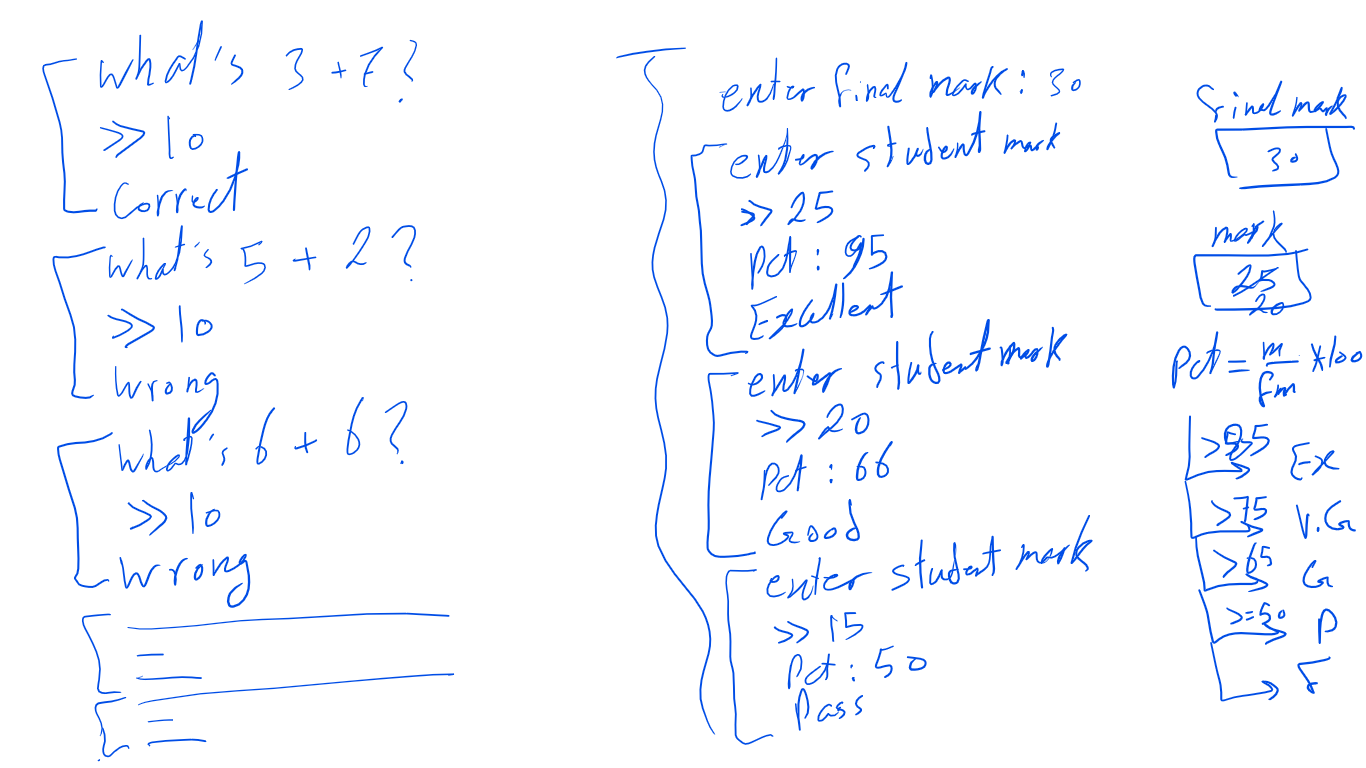 what's 3 + 7?
>> 10
Correct
what's 5 + 2?
>> 10
Wrong
what's 6 + 6?
>> 10
Wrong
enter final mark: 30
enter student mark
>> 25
pct: 95
Excellent
enter student mark
>> 20
pct: 66
Good
enter student mark
>> 15
pct: 50
Pass
final mark
30
mark
25
20
pct = m/fm *100
Ex
>75 V.G
>65 G
>=50 P
F